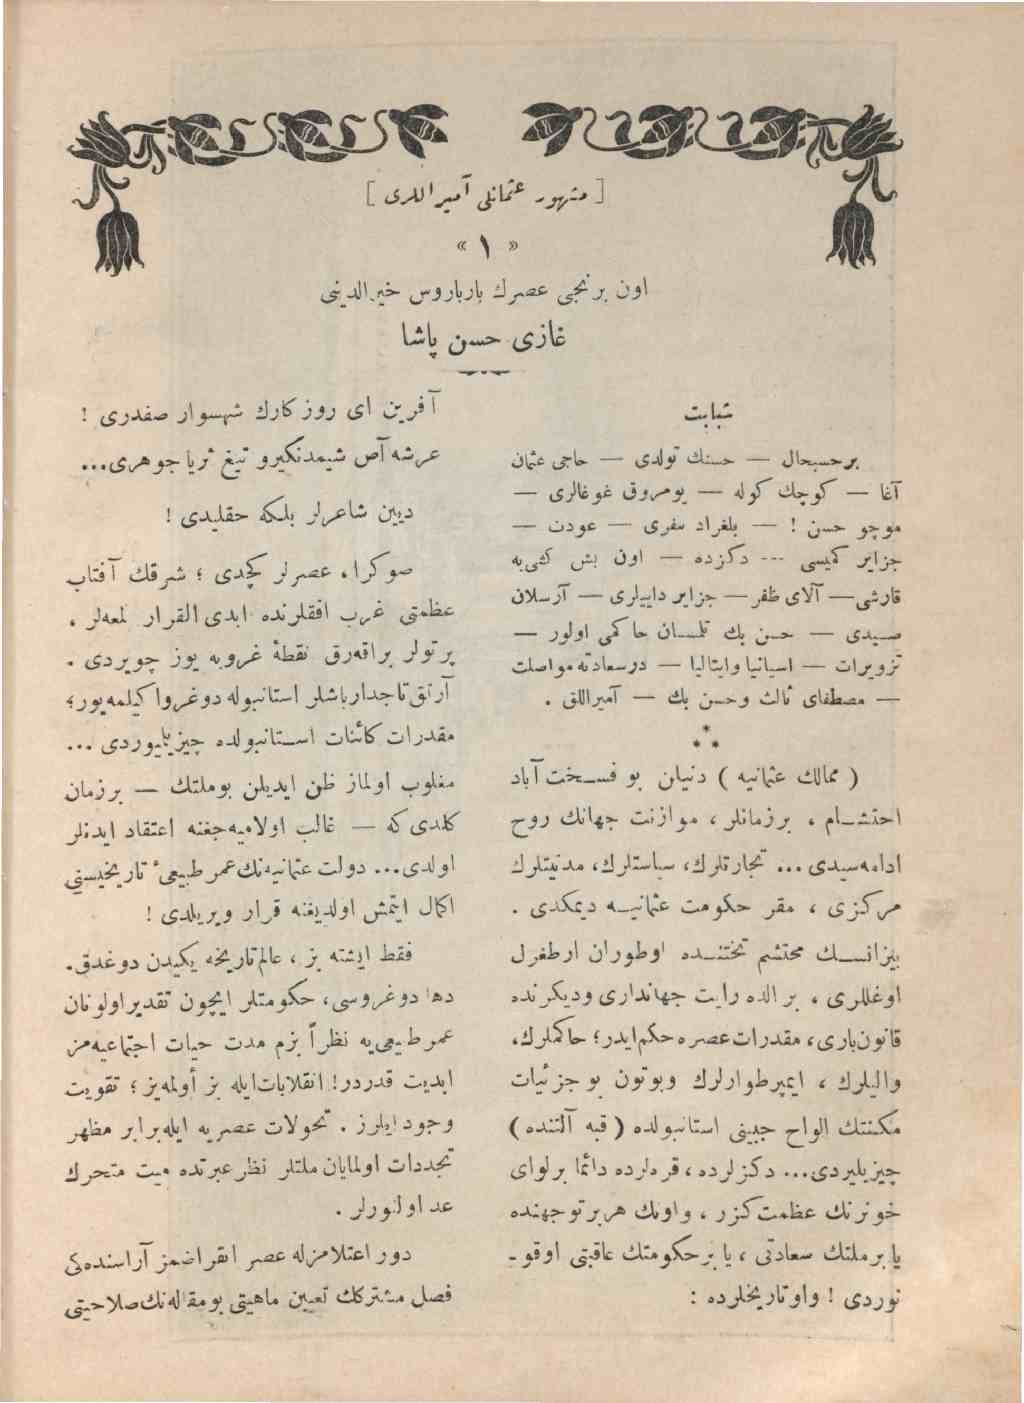 [ مشهور عثمانلی آمیراللری ]
« ١ »
اون برنجی عصرك بارباروس خیرالدینی
غازی حسن پاشا
شبابت
برحسبحال — حسنك تولدی — حاجی عثمان
آغا — كوچك كوله — یومروق غوغالری —
موچو حسن ! — بلغراد سفری — عودت —
جزایر كمیسی --- دكزده — اون بش كشی‌یه
قارشی — آلای ظفر — جزایر داییلری — آرسلان
صیدی — حسن بك تلمسان حاكمی اولور —
تزویرات — اسپانیا وایتالیا — درسعادته مواصلت
— مصطفای ثالث وحسن بك — آمیراللق .
* * *
( ممالك عثمانیه ) دنیلن بو فسخت آباد
احتشام ، برزمانلر ، موازنت جهانك روح
ادامه‌سیدی ... تجارتلرك، سیاستلرك، مدنیتلرك
مركزی ، مقر حكومت عثمانیه دیمكدی .
بیزانسك محتشم تختنده اوطوران ارطغرل
اوغللری ، بر الده رایت جهانداری ودیكرنده
قانون‌باری، مقدرات عصره حكم ایدر؛ حاكملرك،
والیلرك ، ایمپرطوارلرك وبوتون بو جزئیات
مكنتك الواح جبینی استانبولده ( قبه آلتنده )
چیزیلیردی... دكزلرده ، قره‌لرده دائما برلوای
خونرنك عظمت كزر ، واونك هربرتوجهنده
یا برملتك سعادتی ، یا برحكومتك عاقبتی اوقو-
نوردی ! واوتاریخلرده :
آفرین ای روز كارك شهسوار صفدری !
عرشه آص شیمدنكیرو تیغ ثریا جوهری...
دیین شاعرلر بلكه حقلیدی !
صوكرا، عصرلر كچدی ؛ شرقك آفتاب
عظمتی غرب افقلرنده ابدی القرار لمعه‌لر ،
پرتولر براقه‌رق نقطۀ غروبه یوز چویردی .
آرتق تاجدار باشلر استانبوله دوغروا كیلمه‌یور؛
مقدرات كائنات استانبولده چیزیلیوردی ...
مغلوب اولماز ظن ایدیلن بوملتك — برزمان
كلدی كه — غالب اولامیه‌جغنه اعتقاد ایدنلر
اولدی... دولت عثمانیه‌نك عمر طبیعیٔ تاریخیسنی
اكمال ایتمش اولدیغنه قرار ویریلدی !
فقط ایشته بز ، عالم تاریخه یكیدن دوغدق.
دها دوغروسی، حكومتلر ایچون تقدیر اولونان
عمر طبیعی‌یه نظراً بزم مدت حیات اجتماعیه‌مز
ابدیت قدردر! انقلابات ایله بز أولمه‌یز ؛ تقویت
وجود ایلرز . تحولات عصریه ایله برابر مظهر
تجددات اولمایان ملتلر نظر عبرتده میت متحرك
عد اولنورلر .
دور اعتلامزله عصر انقراضمز آراسنده‌كی
فصل مشتركك تعیین ماهیتی بومقاله‌نك صلاحیتی